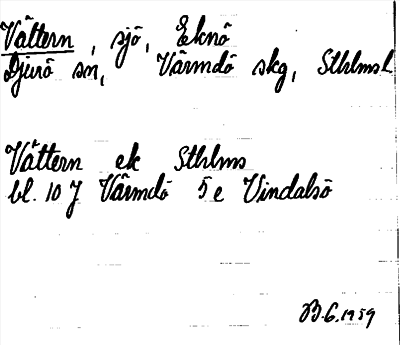 Vättern, sjö, Eknö
Djurö sn, Värmdö skg, Sthlms l.
Vättern ek Sthlms
bl. 10 J Värmdö 5 e Vindalsö
B.G. 1959